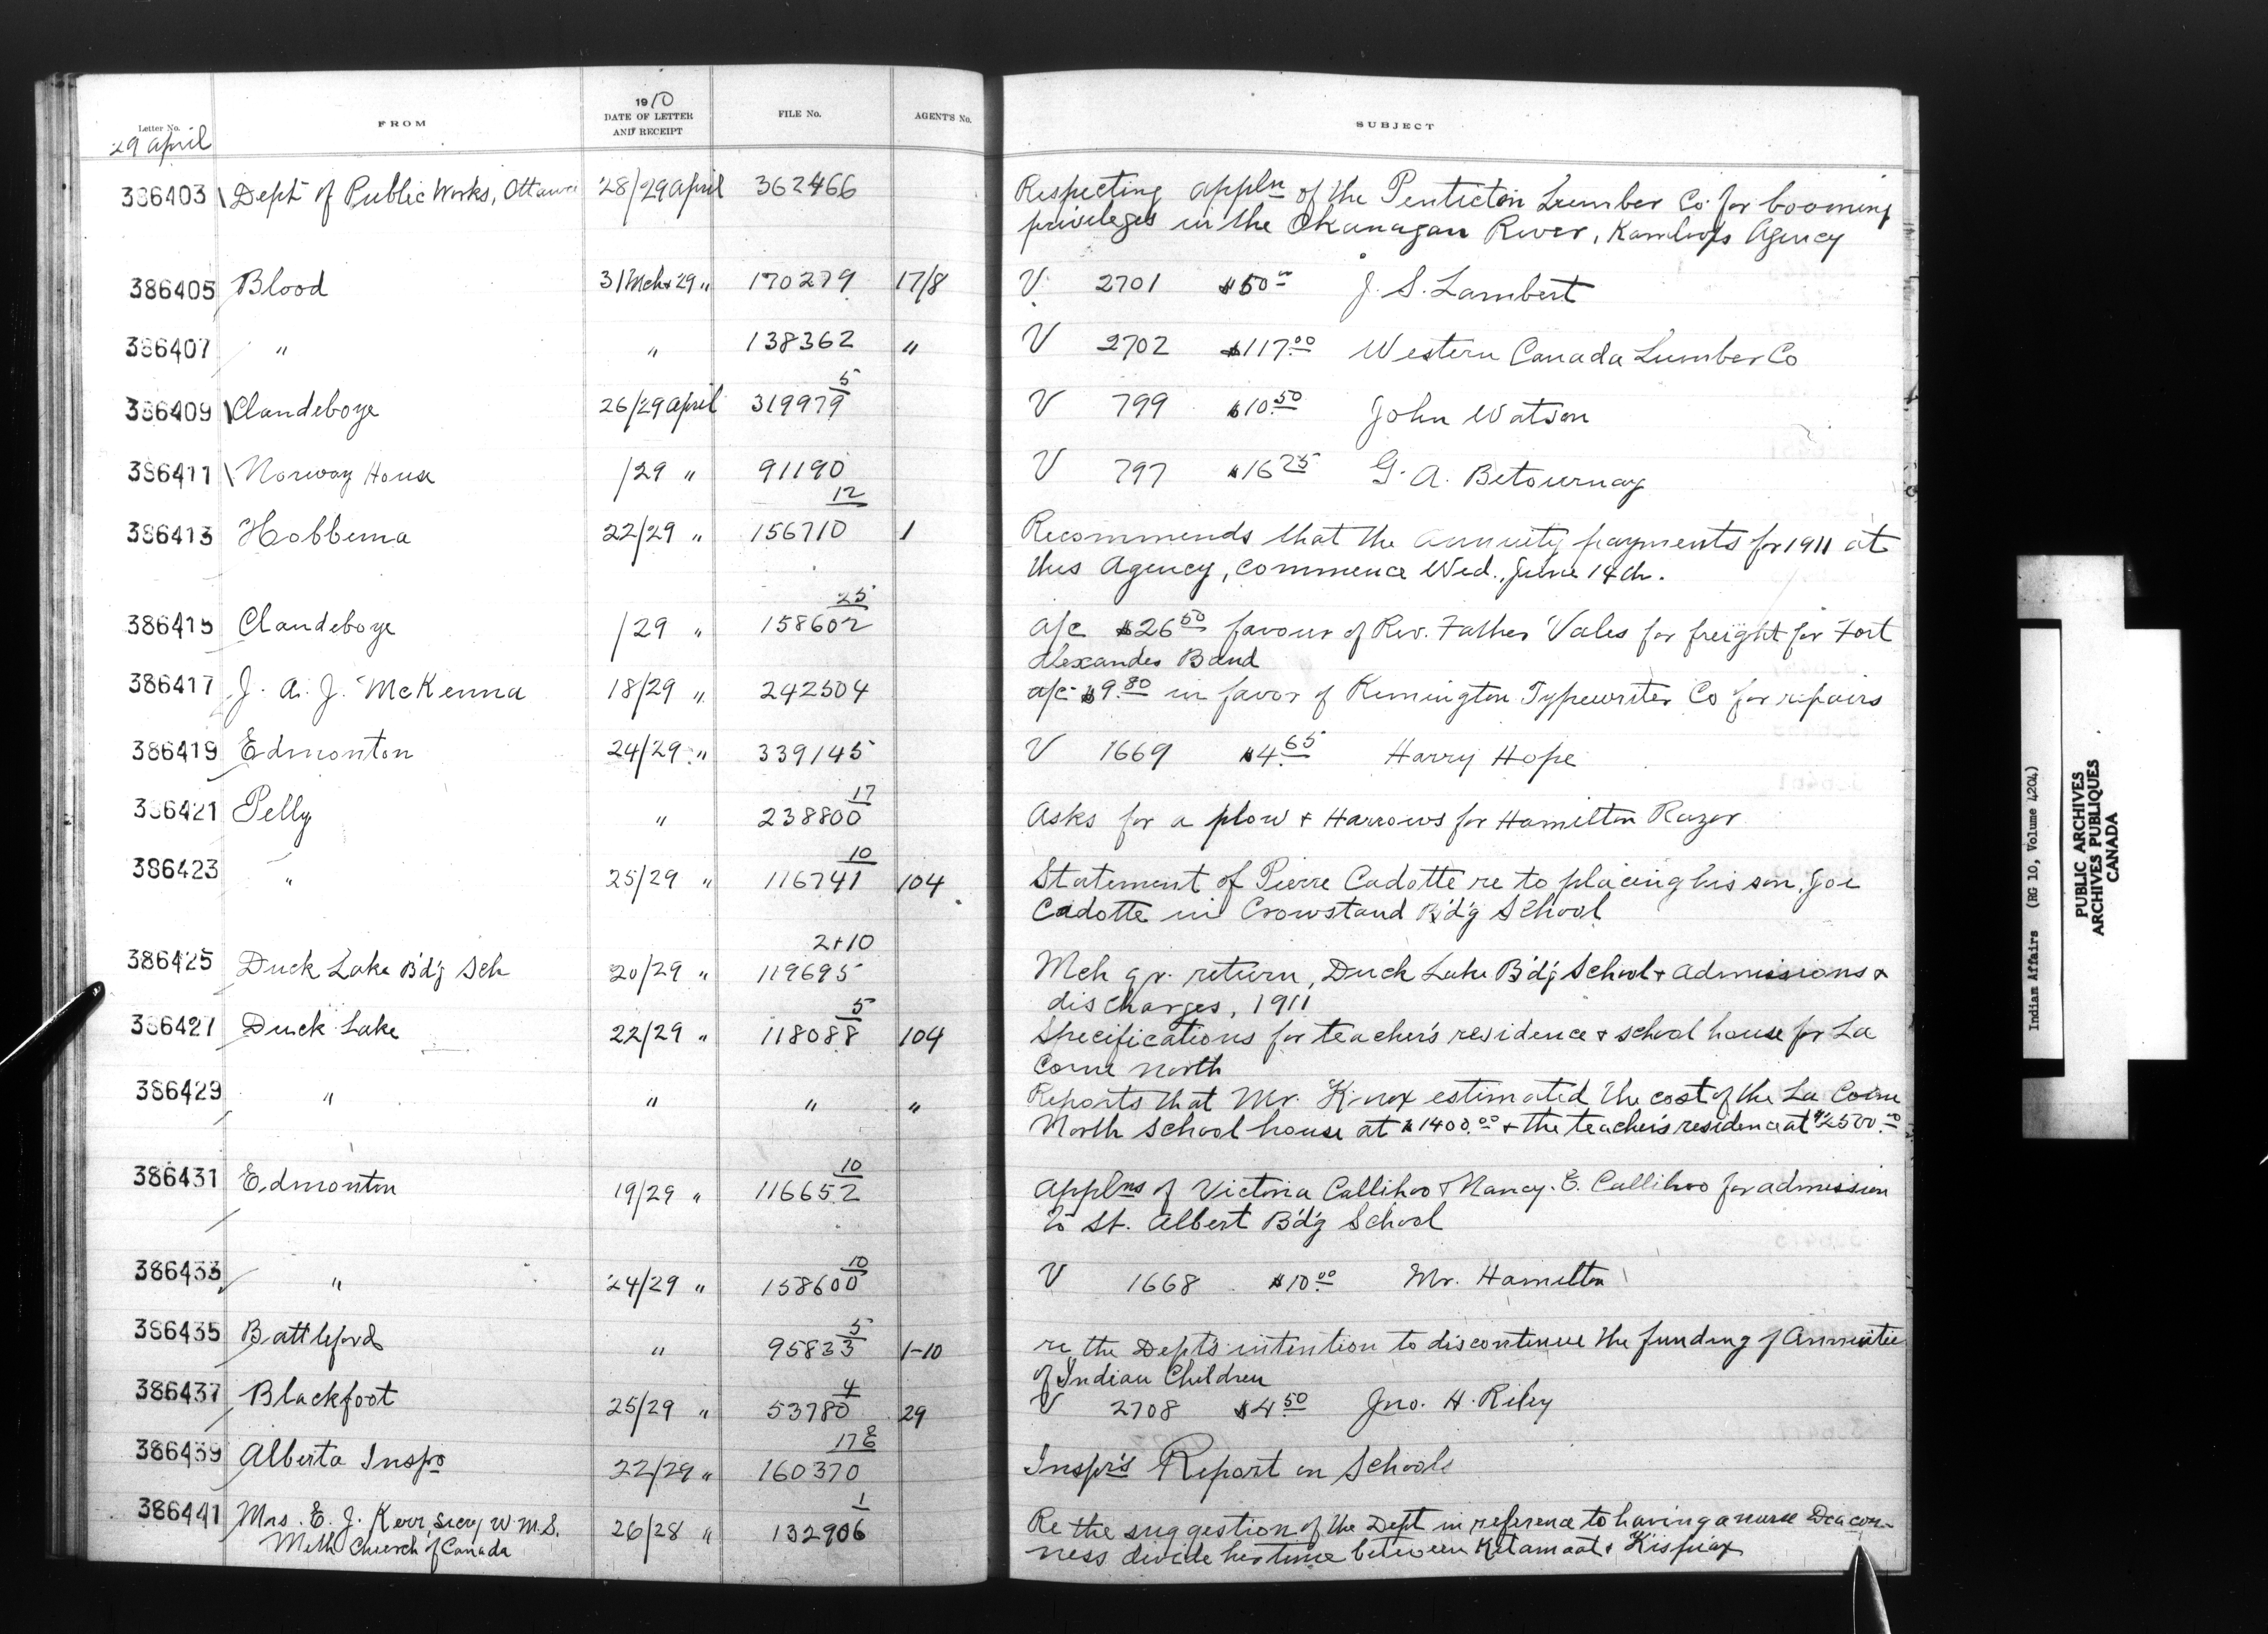 Letter No. FROM 1910 DATE OF LETTER AND RECEIPT FILE No. AGENT'S No. SUBJECT
29 April
386403 Dept of Public Works, Ottawa 28/29 April 362466 Respecting appln of the Penticton Lumber Co. for booming
privileges in the Okanagan River, Kamloops Agency
386405 Blood 31 Mch & 29 " 170279 17/8 V 2701 $50.00 J. S. Lambert
386407 " " 138362 " V 2702 $117.00 Western Canada Lumber Co
386409 Clandeboye 26/29 April 319979 5 V 799 $10.50 John Watson
386411 Norway House /29 " 91190 V 797 $16.25 G. A. Betournay
386413 Hobbema 22/29 " 156710 12 1 Recommends that the annuity payments for 1911 at
this Agency, commence Wed., June 14th.
386415 Clandeboye /29 " 158602 25 a/c $26.50 favour of Rev. Father Vales for freight for Fort
Alexander Band
386417 J. A. J. McKenna 18/29 " 242504 a/c $9.80 in favor of Remington Typewriter Co for repairs
386419 Edmonton 24/29 " 339145 V 1669 $4.65 Harry Hope
386421 Pelly " 238800 17 Asks for a plow & Harrows for Hamilton Razor
386423 " 25/29 " 116741 10 104 Statement of Pierre Cadotte re to placing his son, Joe
Cadotte in Crowstand B'd'g School
386425 Duck Lake B'd'g Sch 20/29 " 119695 2+10 Mch qr. return, Duck Lake B'd'g School & admissions &
discharges, 1911
386427 Duck Lake 22/29 " 118088 5 104 Specifications for teacher's residence & school house for La
Corne North
386429 " " " " Reports that Mr. Knox estimated the cost of the La Corne
North School house at $1400.00 & the teacher's residence at $2500.00
386431 Edmonton 19/29 " 116652 10 Applns of Victoria Callihoo & Nancy. E. Callihoo for admission
to St. Albert B'd'g School
386433 " 24/29 " 158600 10 V 1668 $10.00 Mr. Hamilton
386435 Battleford " 95833 5 1-10 re the Dept's intention to discontinue the funding of Annuities
of Indian Children
386437 Blackfoot 25/29 " 53780 4 29 V 2708 $4.50 Jno. H. Riley
386439 Alberta Inspo 22/29 " 160370 17 Inspr's Report on Schools
386441 Mrs. E. J. Kerr, Secy W. M. S. 26/28 " 132906 1 Re the suggestion of the Dept in reference to having a nurse Deacon-
Meth Church of Canada ness divide her time between Kitamaat & Kispiax
Indian Affairs (RG 10, Volume 4204)
PUBLIC ARCHIVES
ARCHIVES PUBLIQUES
CANADA